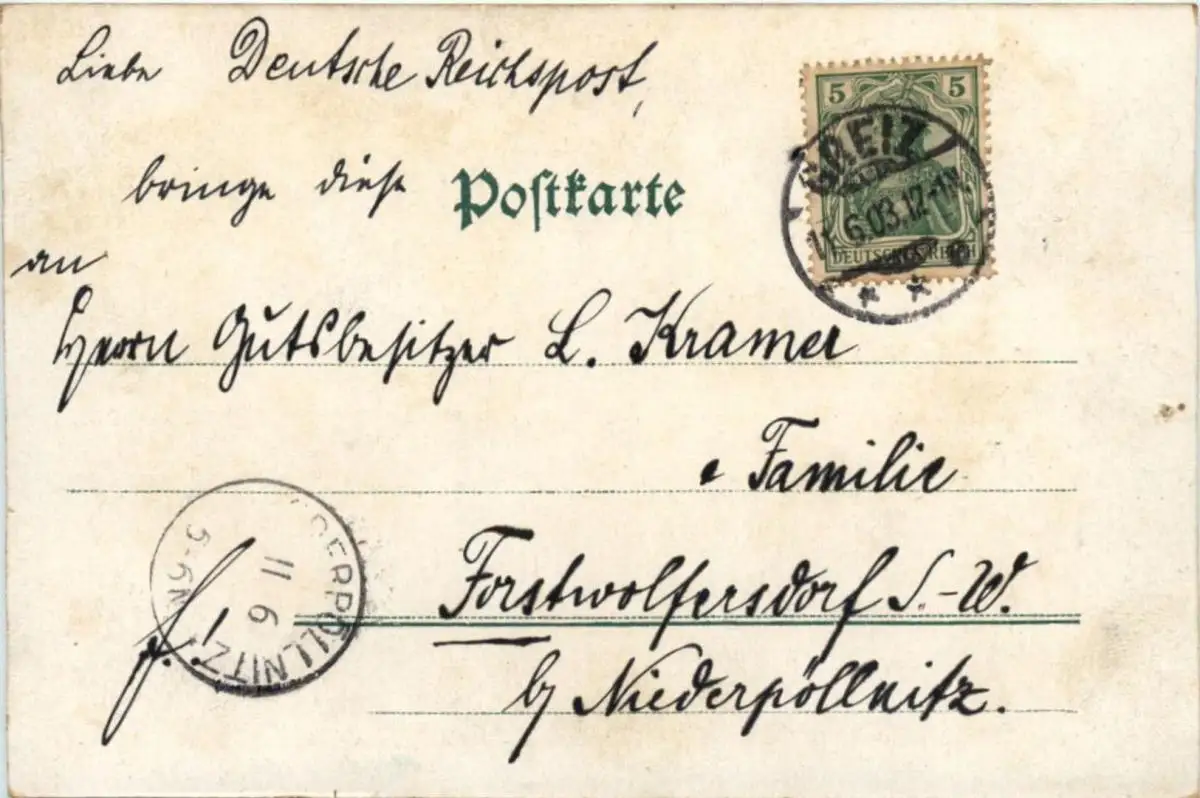 Liebe Deutsche Reichspost,
bringe diese Postkarte
an
Herrn Gutsbesitzer L. Kramer
Familie
Forstwolfersdorf S.-W.
by Niederpöllnitz.
5
5
DEUTSCHES REICH
GREIZ
11.6.03.12-1N.
DERPÖLLNITZ
11 6
5-6N